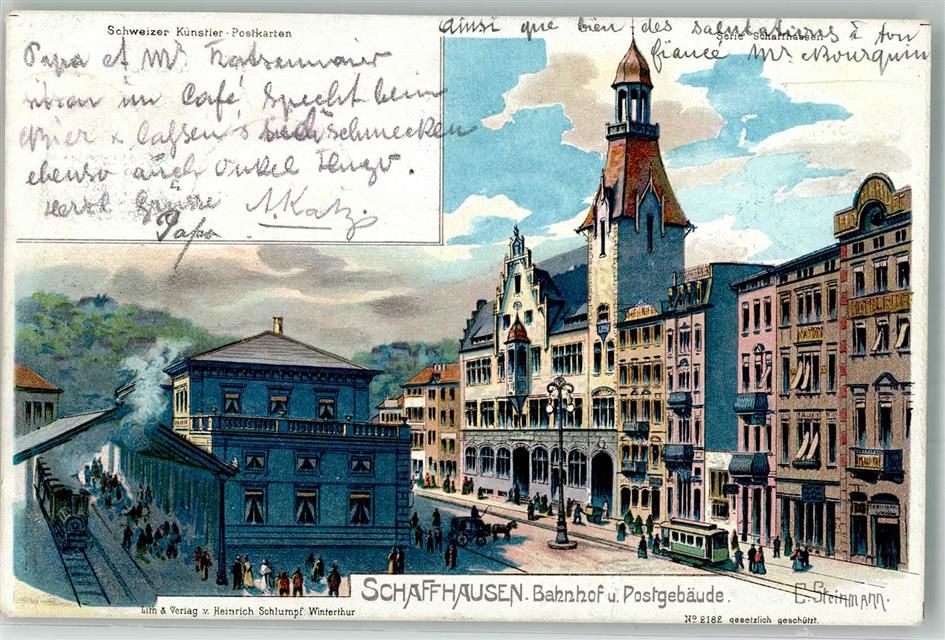 Schweizer Künstler-Postkarten
Serie Schaffhausen
Ainsi que bien des salutations à ton
fiancé Mr Bourquin
Papa et Mr Katzenmaier
sitzen im Café Specht beim
Bier &
schmecken
ebenso auch Onkel Hugo.
Herzl Grüsse A. Katz
Papa
HOTEL RÜFF
SCHAFFHAUSEN. Bahnhof u. Postgebäude.
C. Steinmann.
Lith & Verlag v. Heinrich Schlumpf. Winterthur
No 2182 gesetzlich geschützt.